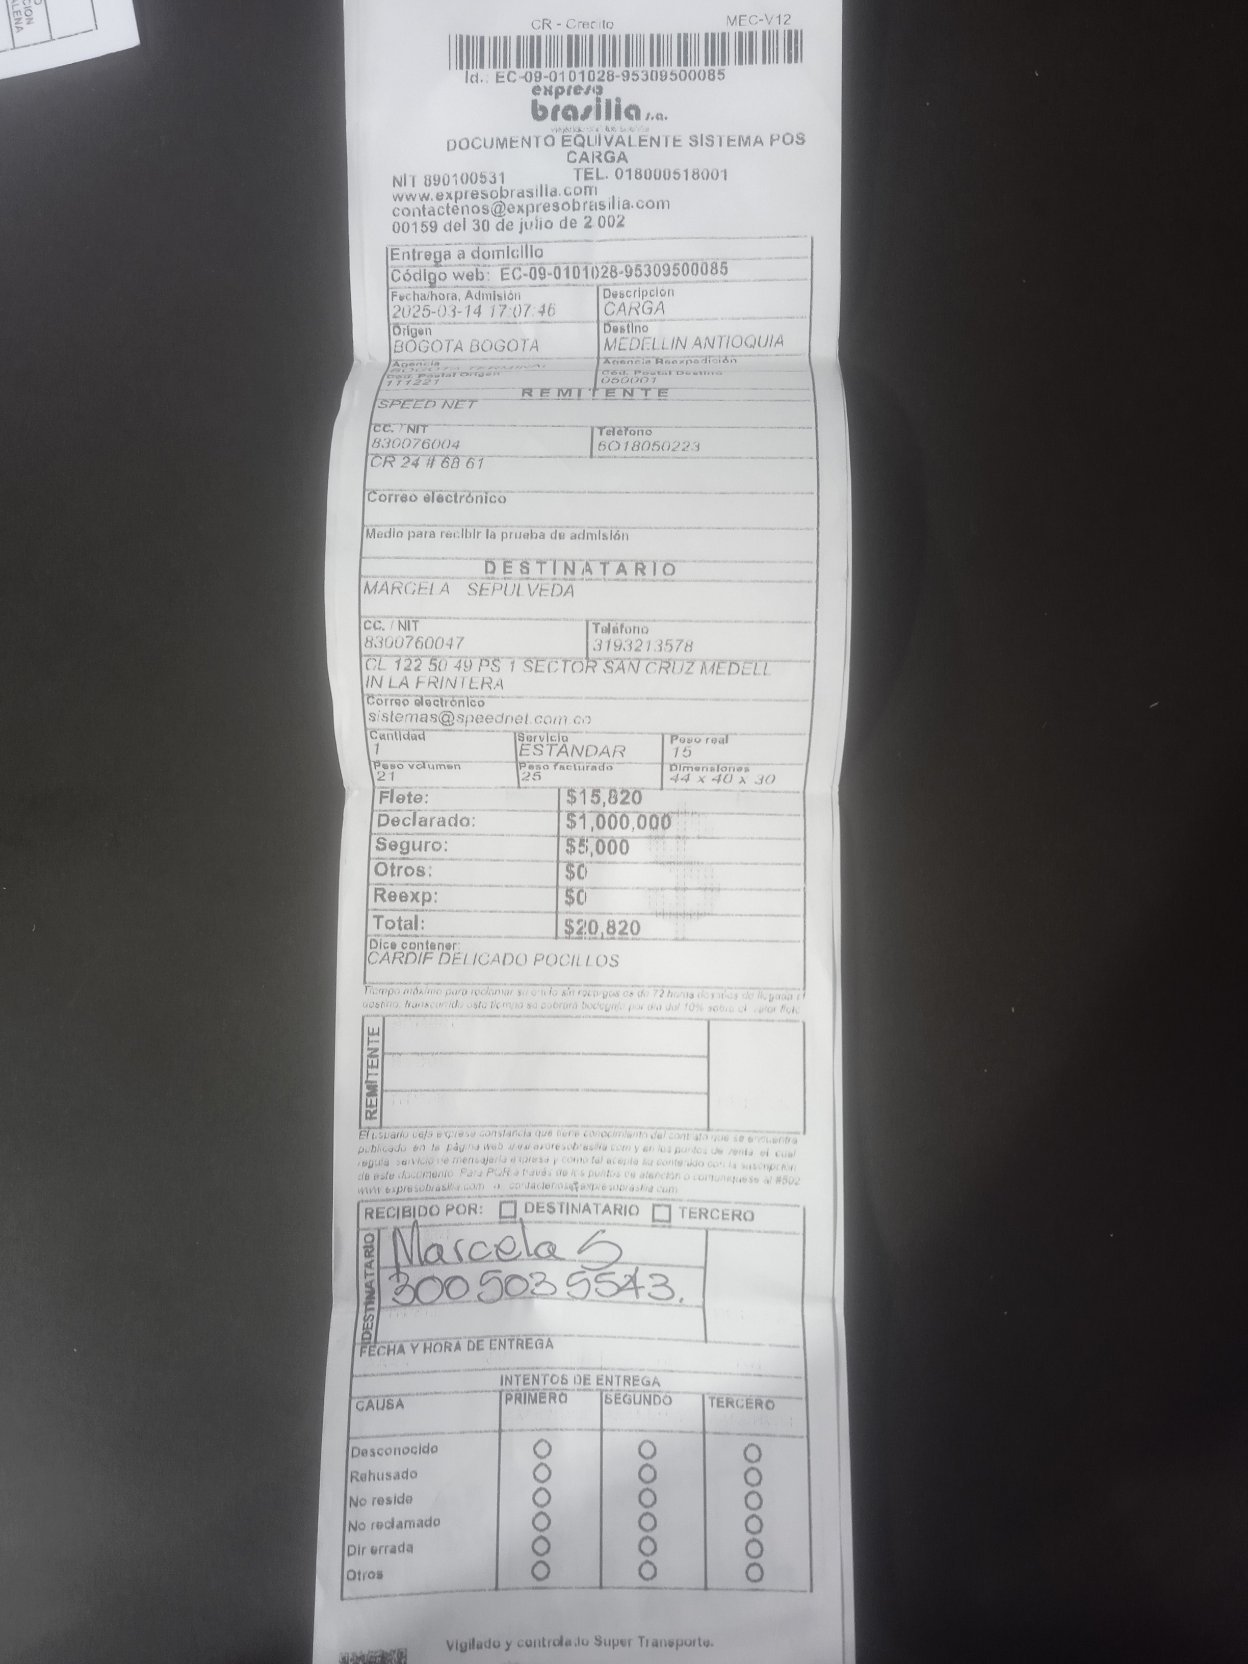 CION
ALENA
CR - Crecito MEC-V12
Id.: EC-09-0101028-95309500085
expreso
brasilia s.a.
DOCUMENTO EQUIVALENTE SISTEMA POS
CARGA
NIT 890100531 TEL. 018000518001
www.expresobrasilia.com
contactenos@expresobrasilia.com
00159 del 30 de julio de 2.002
Entrega a domicilio
Código web: EC-09-0101028-95309500085
Fecha/hora, Admisión Descripción
2025-03-14 17:07:46 CARGA
Origen Destino
BOGOTA BOGOTA MEDELLIN ANTIOQUIA
Agencia Agencia Reexpedición
BOGOTA TERMINAL
Cód. Postal Origen Cód. Postal Destino
111221 050001
REMITENTE
SPEED NET
CC. / NIT Teléfono
830076004 6018050223
CR 24 # 68 61
Correo electrónico
Medio para recibir la prueba de admisión
DESTINATARIO
MARCELA SEPULVEDA
CC. / NIT Teléfono
8300760047 3193213578
CL 122 50 49 PS 1 SECTOR SAN CRUZ MEDELL
IN LA FRINTERA
Correo electrónico
sistemas@speednet.com.co
Cantidad Servicio Peso real
1 ESTANDAR 15
Peso volumen Peso facturado Dimensiones
21 25 44 x 40 x 30
Flete: $15,820
Declarado: $1,000,000
Seguro: $5,000
Otros: $0
Reexp: $0
Total: $20,820
Dice contener:
CARDIF DELICADO POCILLOS
Tiempo máximo para reclamar su envío sin recargos es de 72 horas después de llegada al
destino, transcurrido este tiempo se cobrará bodegaje por día del 10% sobre el valor flete
REMITENTE
El usuario deja expresa constancia que tiene conocimiento del contrato que se encuentra
publicado en la página web www.expresobrasilia.com y en los puntos de venta el cual
regula servicio de mensajería expresa y como tal acepta su contenido con la suscripción
de este documento. Para PQR a través de los puntos de atención o comuníquese al #502
www.expresobrasilia.com o contactenos@expresobrasilia.com
RECIBIDO POR: DESTINATARIO TERCERO
DESTINATARIO
Marcela S
300 503 5543.
FECHA Y HORA DE ENTREGA
INTENTOS DE ENTREGA
CAUSA PRIMERO SEGUNDO TERCERO
Desconocido
Rehusado
No reside
No reclamado
Dir errada
Otros
Vigilado y controlado Super Transporte.